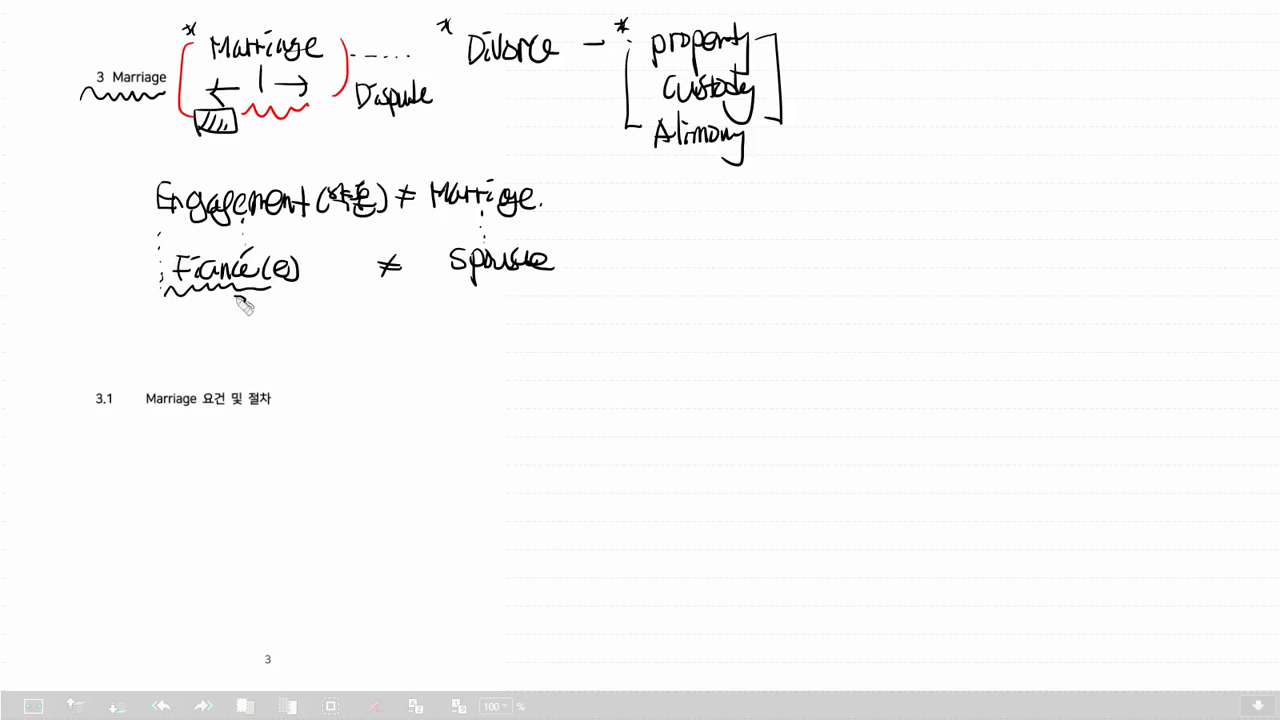 * Marriage ..... * Divorce - * property
3 Marriage
Dispute
custody
Alimony
Engagement (약혼) ≠ Marriage.
Fiancé(e) ≠ Spouse
3.1 Marriage 요건 및 절차
3
100 %